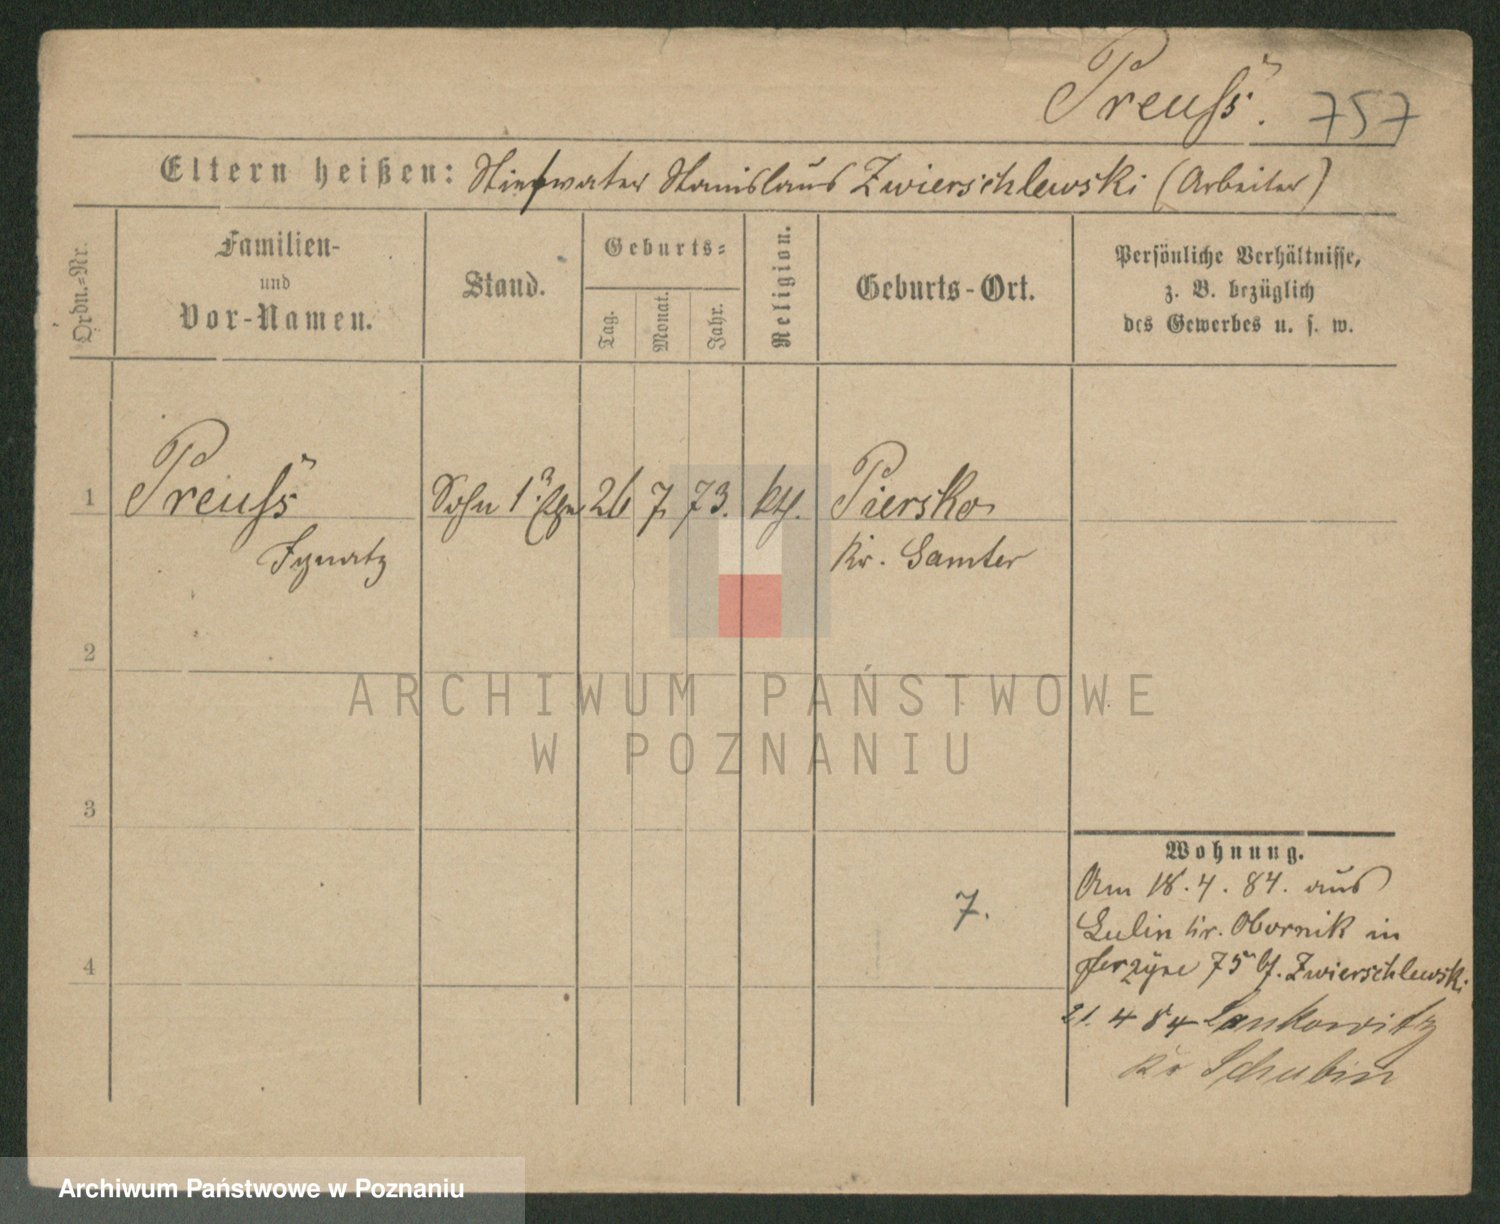 Preuß. 757
Eltern heißen: Stiefvater Stanislaus Zwierschlewski (Arbeiter)
Ordn.-Nr.
Familien-
und
Vor-Namen.
Stand.
Geburts-
Tag.
Monat.
Jahr.
Religion.
Geburts-Ort.
Persönliche Verhältnisse,
z. B. bezüglich
des Gewerbes u. s. w.
1 Preuß Sohn 26 7. 73. kth. Piersko
Ignatz Kr. Samter
2
3
4
7.
Wohnung.
Am 18.4.84. aus
Lulin Kr. Obornik in
Jerzyce 75 b/. Zwierschlewski
21. 4 84 Lankowitz
Kr Schubin
ARCHIWUM PAŃSTWOWE
W POZNANIU
Archiwum Państwowe w Poznaniu